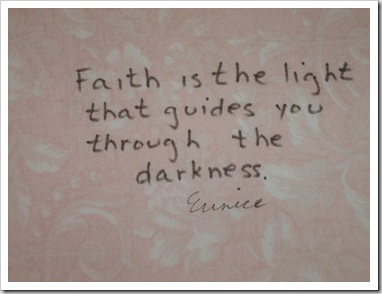 Faith is the light
that guides you
through the
darkness.
Eunice